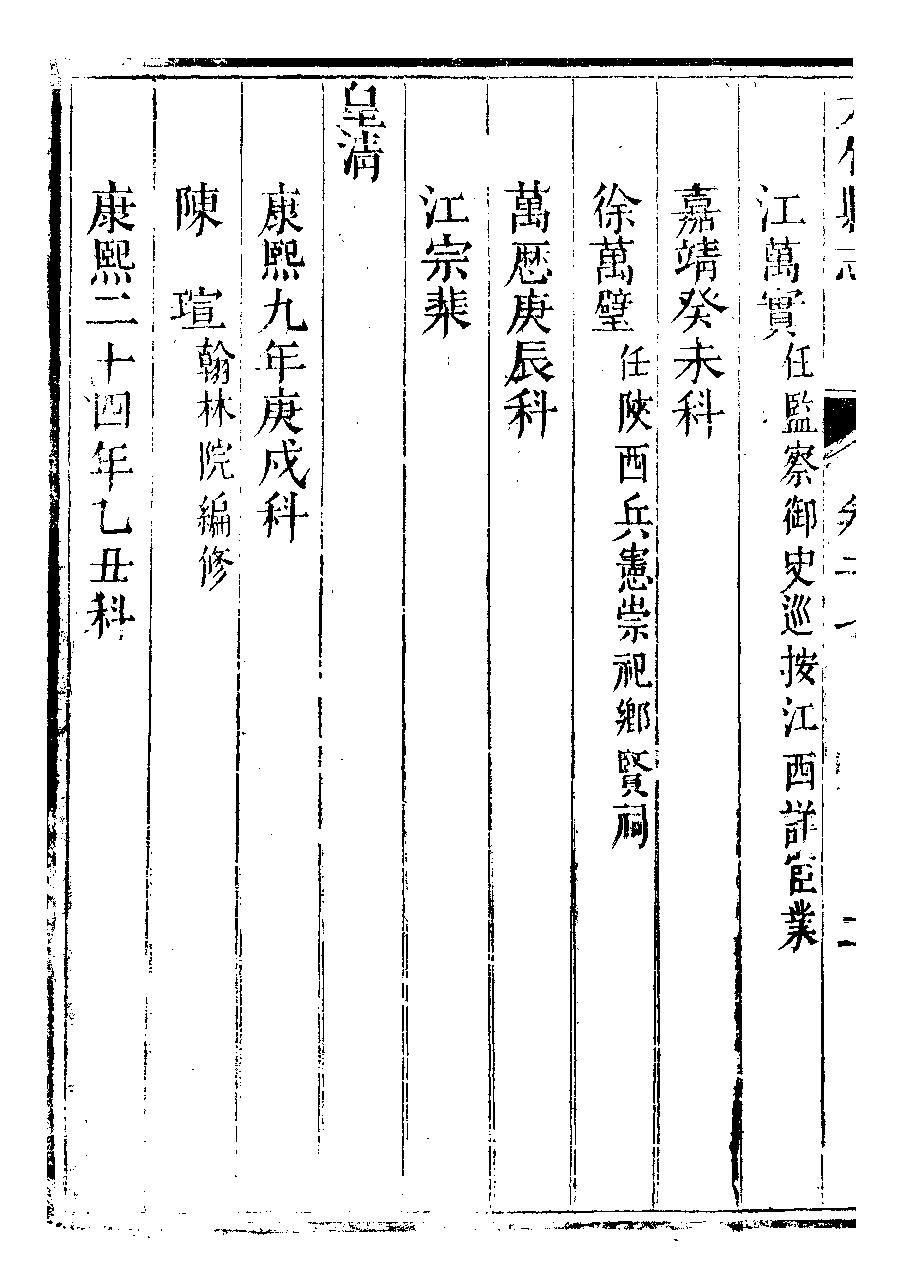 江萬實任監察御史巡按江西詳宦業
嘉靖癸未科
徐萬璧任陝西兵憲崇祀鄉賢祠
萬厯庚辰科
江宗棐
皇清
康熙九年庚戌科
陳 瑄翰林院編修
康熙二十四年乙丑科